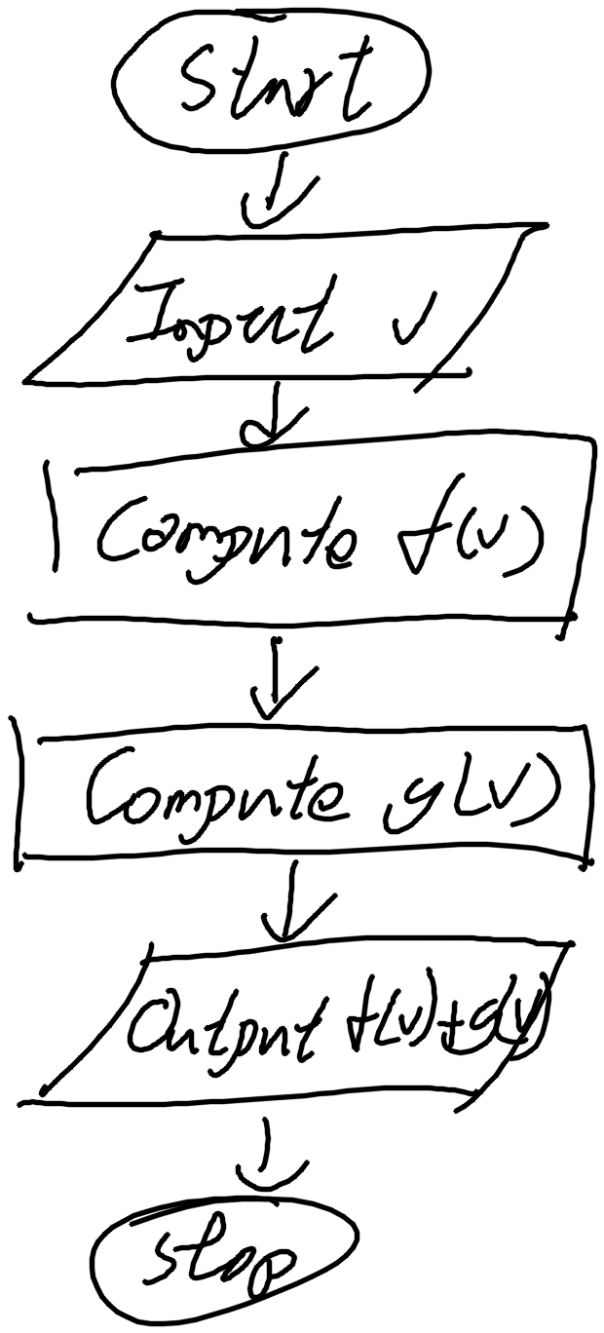 Start
Input v
Compute f(v)
Compute g(v)
Output f(v)+g(v)
stop